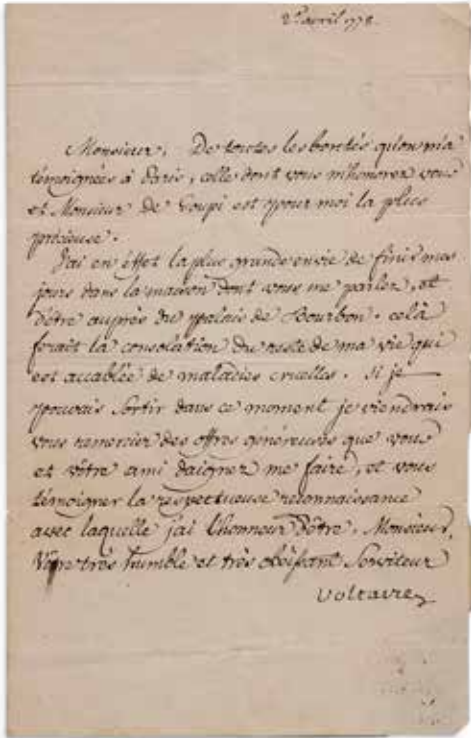 avril 1778.
Monsieur, De toutes les bontés qu'on m'a
témoignées à Paris, celle dont vous m'honorez vous
et Monsieur de est pour moi la plus
précieuse.
J'ai en éffet la plus grande envie de finir mes
jours dans la maison dont vous me parlez, et
d'être auprès du palais de Bourbon. celà
ferait la consolation du reste de ma vie qui
est accablée de maladies cruelles. Si je
pouvais sortir dans ce moment je viendrais
vous remercier des offres généreuses que vous
et vôtre ami daignez me faire, et vous
témoigner la respectueuse reconnaissance
avec laquelle j'ai l'honneur d'être, Monsieur,
Vôtre très humble et très obéissant Serviteur
Voltaire